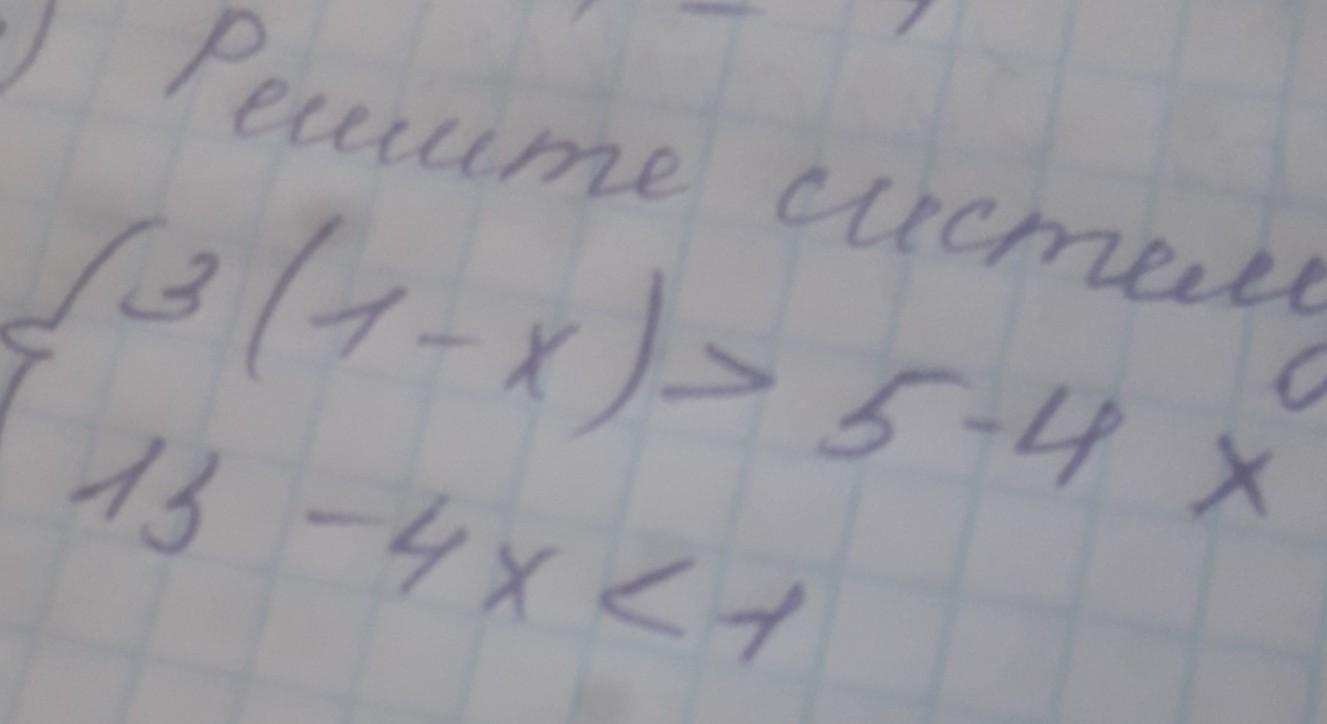 ) Решите систему
{ 3(1-x) > 5-4x
13 -4x < 1